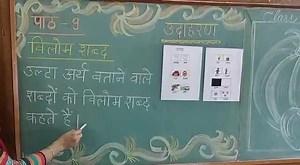 पाठ - 9
उदाहरण
विलोम शब्द
उल्टा अर्थ बताने वाले
शब्दों को विलोम शब्द
कहते हैं।